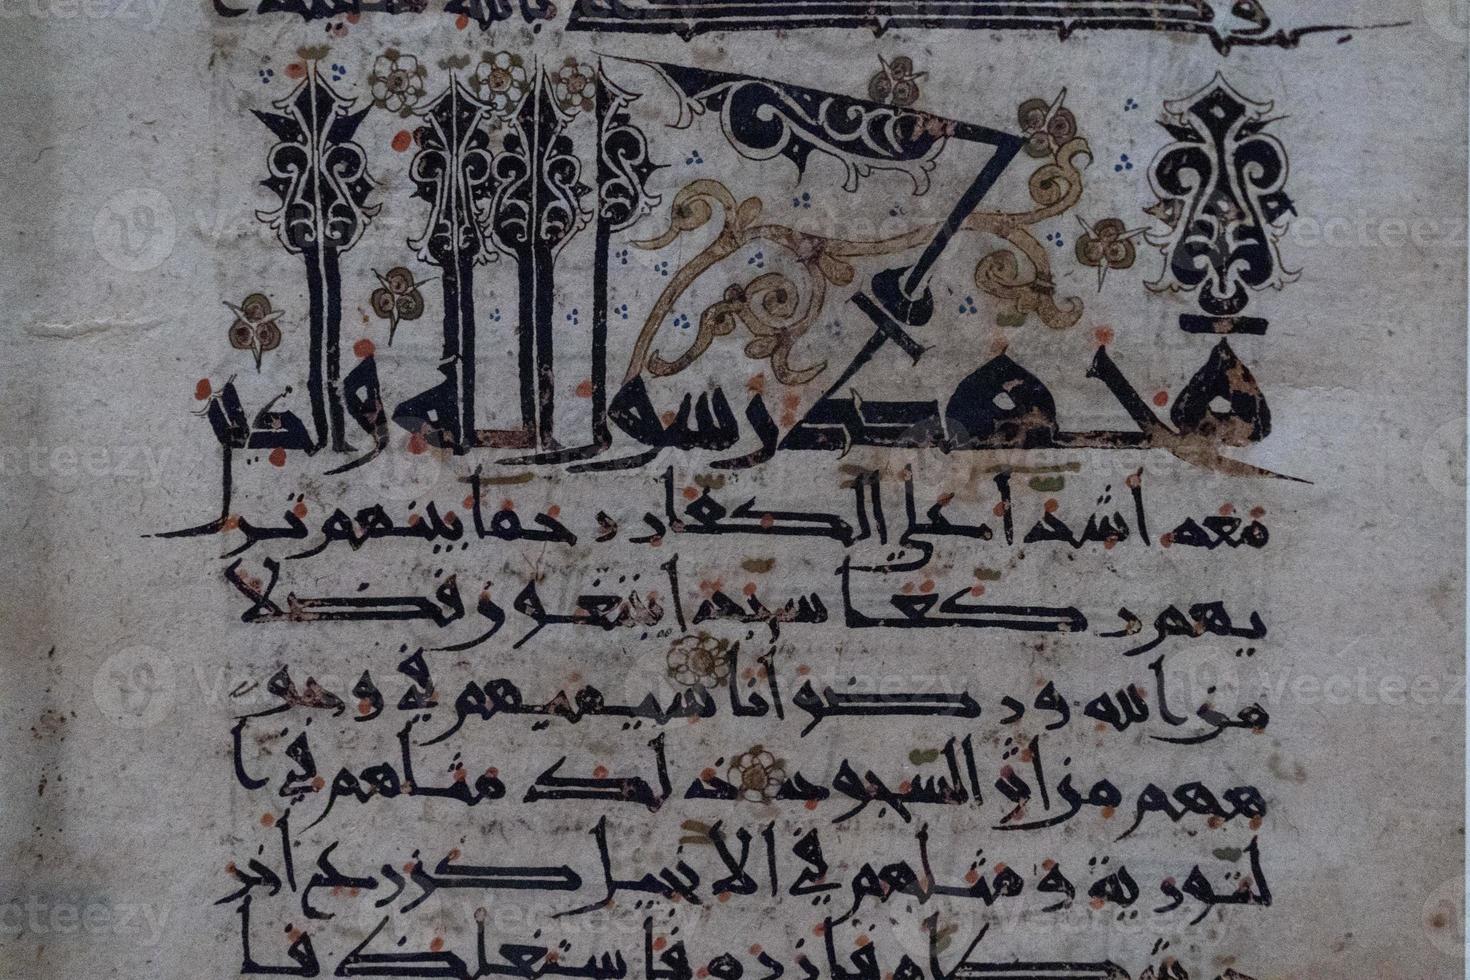 وكفى بالله شهيدا
محمد رسول الله والذين
معه أشدا على الكفار رحما بينهم تر
يهم ركعا سجدا يبتغون فضلا
من الله ورضوانا سيميهم في وجو
ههم من أثر السجود ذلك مثلهم في ا
لتورية ومثلهم في الانجيل كزرع اخر
ج شطاه فازره فاستغلظ فا
Vecteezy